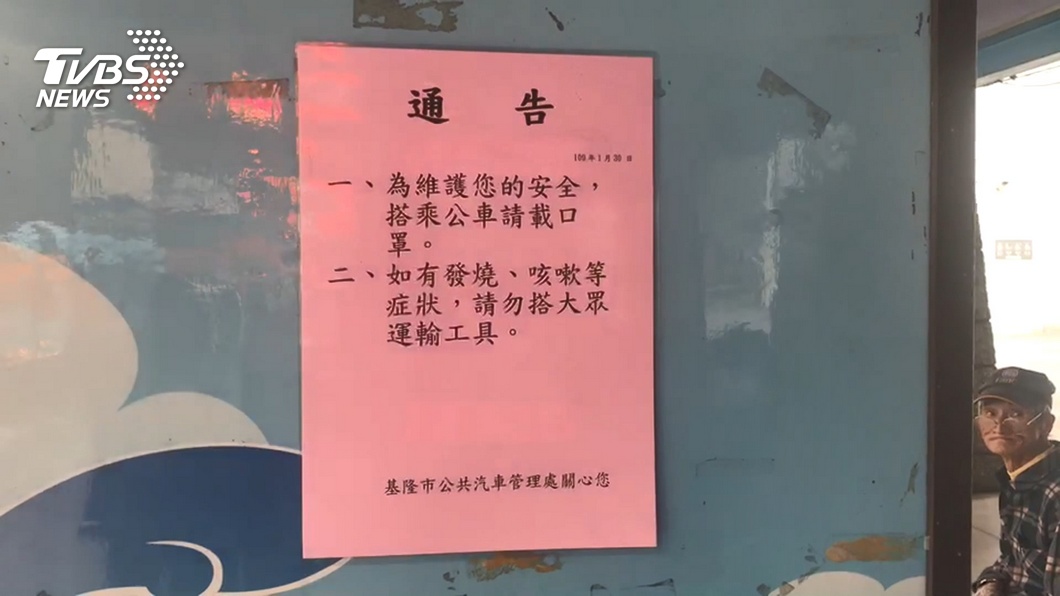 TVBS
NEWS
通 告
109年1月30日
一、為維護您的安全，
搭乘公車請載口
罩。
二、如有發燒、咳嗽等
症狀，請勿搭大眾
運輸工具。
基隆市公共汽車管理處關心您